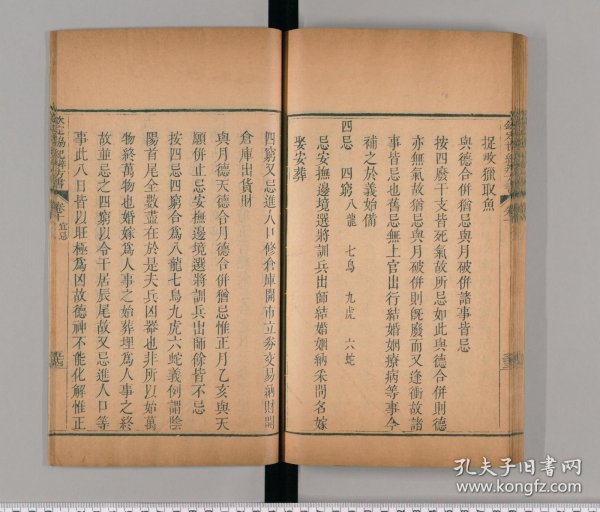 捉畋獵取魚
與德合併猶忌與月破併諸事皆忌
按四廢干支皆死氣故所忌如此與德合併則德
亦無氣故猶忌與月破併則旣廢而又逢衝故諸
事皆忌也舊忌無上官出行結婚姻療病等事今
補之於義始備
四忌 四窮 八龍 七鳥 九虎 六蛇
忌安撫邊境選將訓兵出師結婚姻納采問名嫁
娶安葬
四窮又忌進人口修倉庫開市立券交易納財開
倉庫出貨財
與月德天德合月德合併猶忌惟正月乙亥與天
願併止忌安撫邊境選將訓兵出師餘皆不忌
按四忌四窮合爲八龍七鳥九虎六蛇義例謂陰
陽首尾全數盡在於是夫兵凶器也非所以始萬
物終萬物也婚嫁爲人事之始葬埋爲人事之終
故並忌之四窮以令干居辰尾故又忌進人口等
事此八日皆以旺極爲凶故德神不能化解惟正
欽定協紀辨方書
卷十 宜忌
孔夫子旧书网
www.kongfz.com